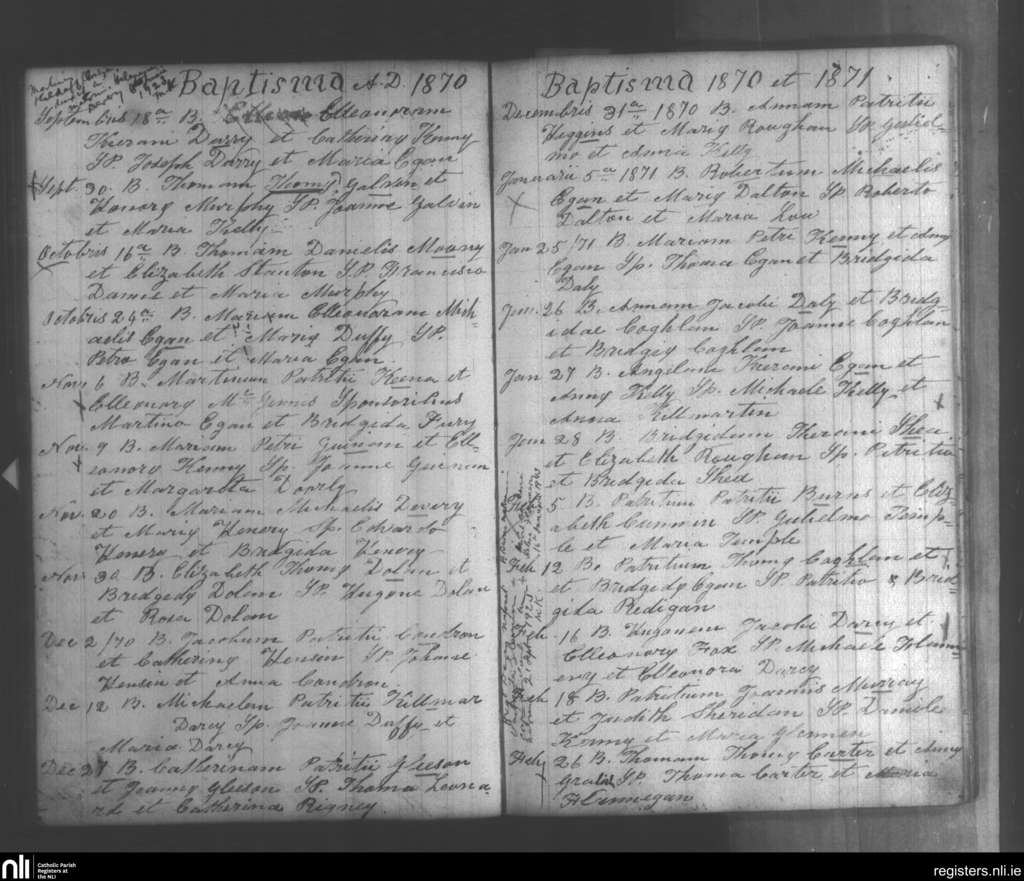 Baptisma A.D. 1870
Septembris 18a B. Elleonoram
Kierani Darcy et Catherinæ Kenny
SP. Joseph Darcy et Maria Egan
Sept. 30. B. Thomam Thomæ Galvin et
Honoræ Murphy SP. Joanne Galvin
et Maria Kelly
Octobris 16a B. Thomam Danielis Moony
et Elizabeth Stanton S.P. Francisco
et Maria Murphy
Octobris 24a B. Elleonoram Mich-
aelis Egan et Mariæ Duffy SP.
Petro Egan et Maria Egan.
Nov. 6 B. Martinum Patritii Keena et
Elleonoræ Mc Ginnis Sponsoribus
Martino Egan et Bridgida Fury
Nov. 9 B. Mariam Petri Guinan et Ell-
eonoræ Kenny Sp. Joanne Guinan
et Margarita
Nov. 20 B. Mariam Michaelis Devery
et Mariæ Henery Sp. Edvardo
Henery et Bridgida Henery
Nov. 30 B. Elizabeth Thomæ Dolan et
Bridgedæ Dolan SP. Eugene Dolan
et Rosa Dolan
Dec 2/70 B. Jacobum Patritii Condron
et Catherinæ Hensin SP. Johanne
Hensin et Anna Condron.
Dec 12 B. Michaelem Patritii Killmar
Darcy Sp. Joanne Duffy et
Maria Darcy
Dec 27 B. Catherinam Patritii Gleeson
et Joannæ Gleeson SP. Thoma Leona-
rd et Catherina Rigney
Baptisma 1870 et 1871
Decembris 31a 1870 B. Annam Patritii
Higgins et Mariæ Roughan SP. Guliel-
mo et Anna Kelly
Januarii 5a 1871 B. Robertum Michaelis
Egan et Mariæ Dalton SP. Roberto
Dalton et Maria Low
Jan 25/71 B. Mariam Petri Kenny et Annæ
Egan Sp. Thoma Egan et Bridgida
Daly
Jan. 26 B. Annam Jacobi Daly et Bridg-
idae Coghlan SP. Joanne Coghlan
et Bridgida Coghlan
Jan 27 B. Kierani Egan et
Annæ Kelly Sp. Michaele Kelly et
Anna Killmartin
Jan 28 B. Bridgidam Kierani Shea
et Elizabeth Roughan Sp. Patritio
et Bridgida Shea
Feb 5 B. Patritum Patritii Burns et Eliz-
abeth SP. Gulielmo Temp-
le et Maria Temple
Feb 12 B. Patritium Thomæ Coghlan et
et Bridgedæ Egan SP Patritio & Brid-
gida Redigan
Feb. 16 B. Jacobi Darcy et
Elleonoræ Fox SP. Michaele Flann-
ery et Elleonora Darcy
Feb 18 B. Patritium Joannis Murray
et Judith Sheridan SP. Daniele
Kenny et Maria
Feb 26 B. Thomam Thomæ Carter et Annæ
SP. Thoma Carter et Maria
Finnegan
nli
Catholic Parish
Registers at
the NLI
registers.nli.ie